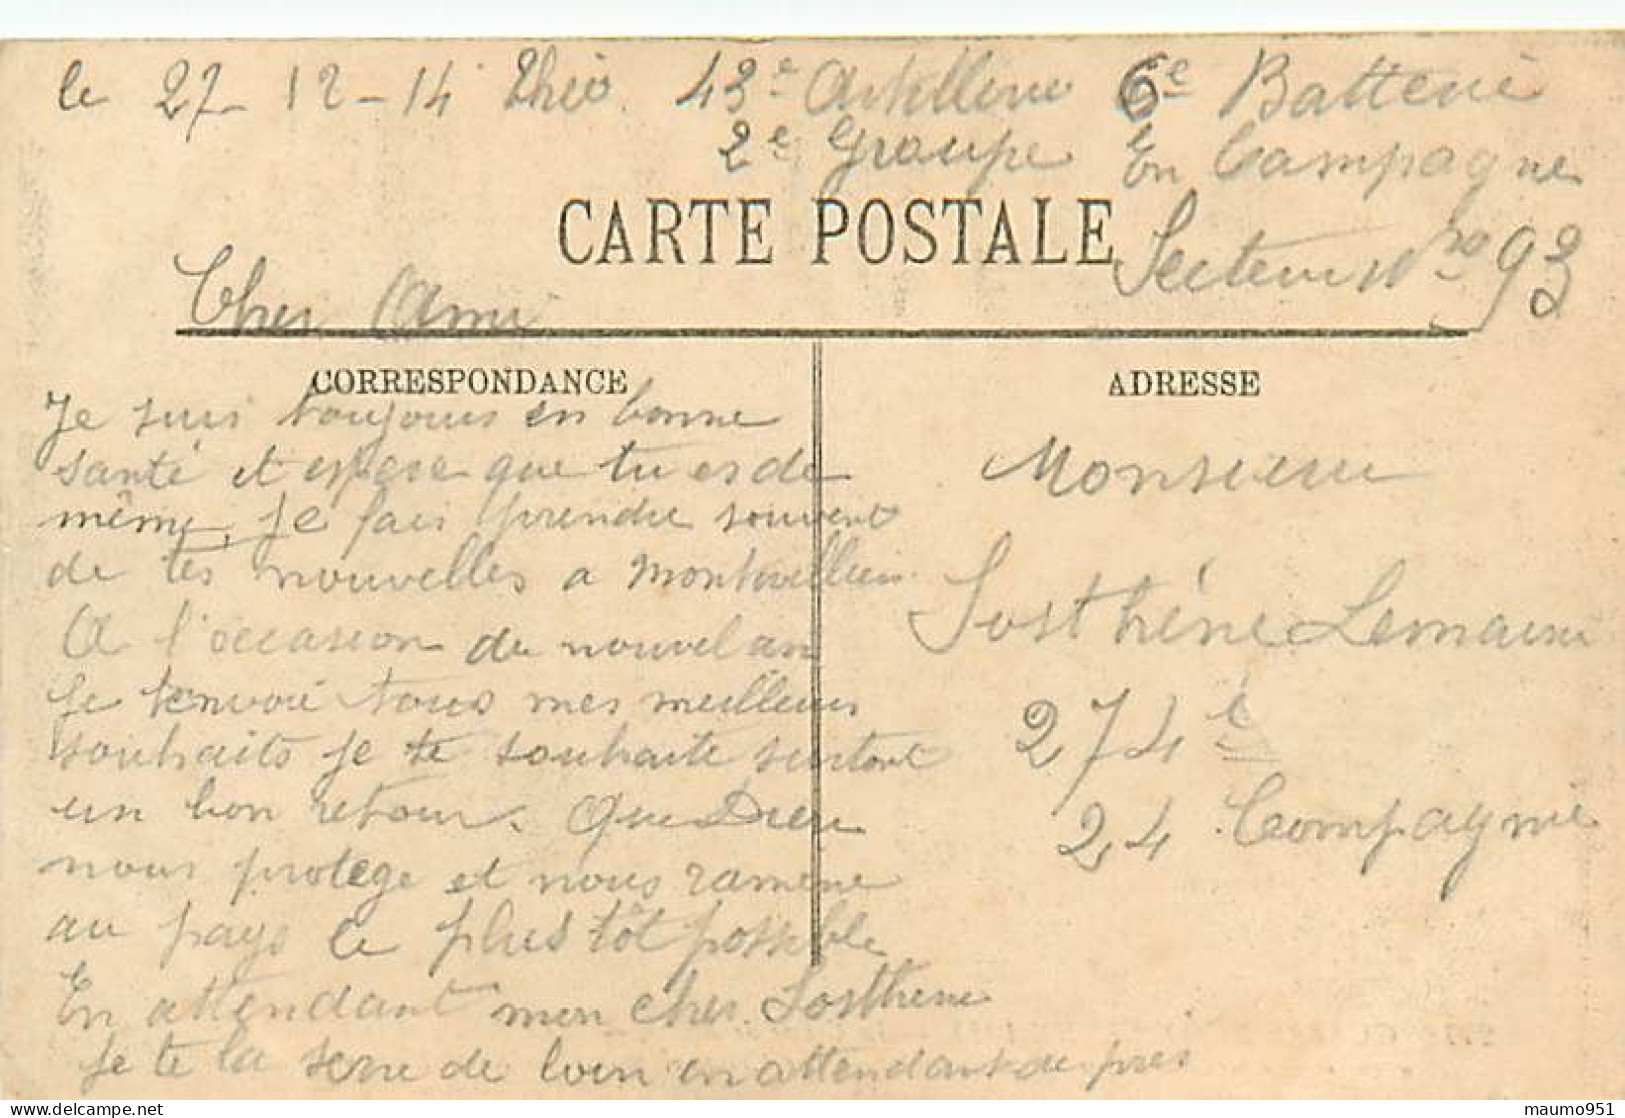 le 27-12-14 Théo. 43e Artillerie 6e Batterie
2e Groupe En Campagne
CARTE POSTALE
Secteur No 93
Cher Ami
CORRESPONDANCE
Je suis toujours en bonne
santé et espère que tu es de
même, je fais prendre souvent
de tes nouvelles a Montivilliers.
A l'occasion du nouvel an
Je t'envoie tous mes meilleurs
souhaits je te souhaite surtout
un bon retour. Que Dieu
nous protège et nous ramène
au pays le plus tôt possible
En attendant mon cher Sosthène
Je te la serre de loin en attendant de près
ADRESSE
Monsieur
Sosthène Lemaire
274e
24 Compagnie
maumo951